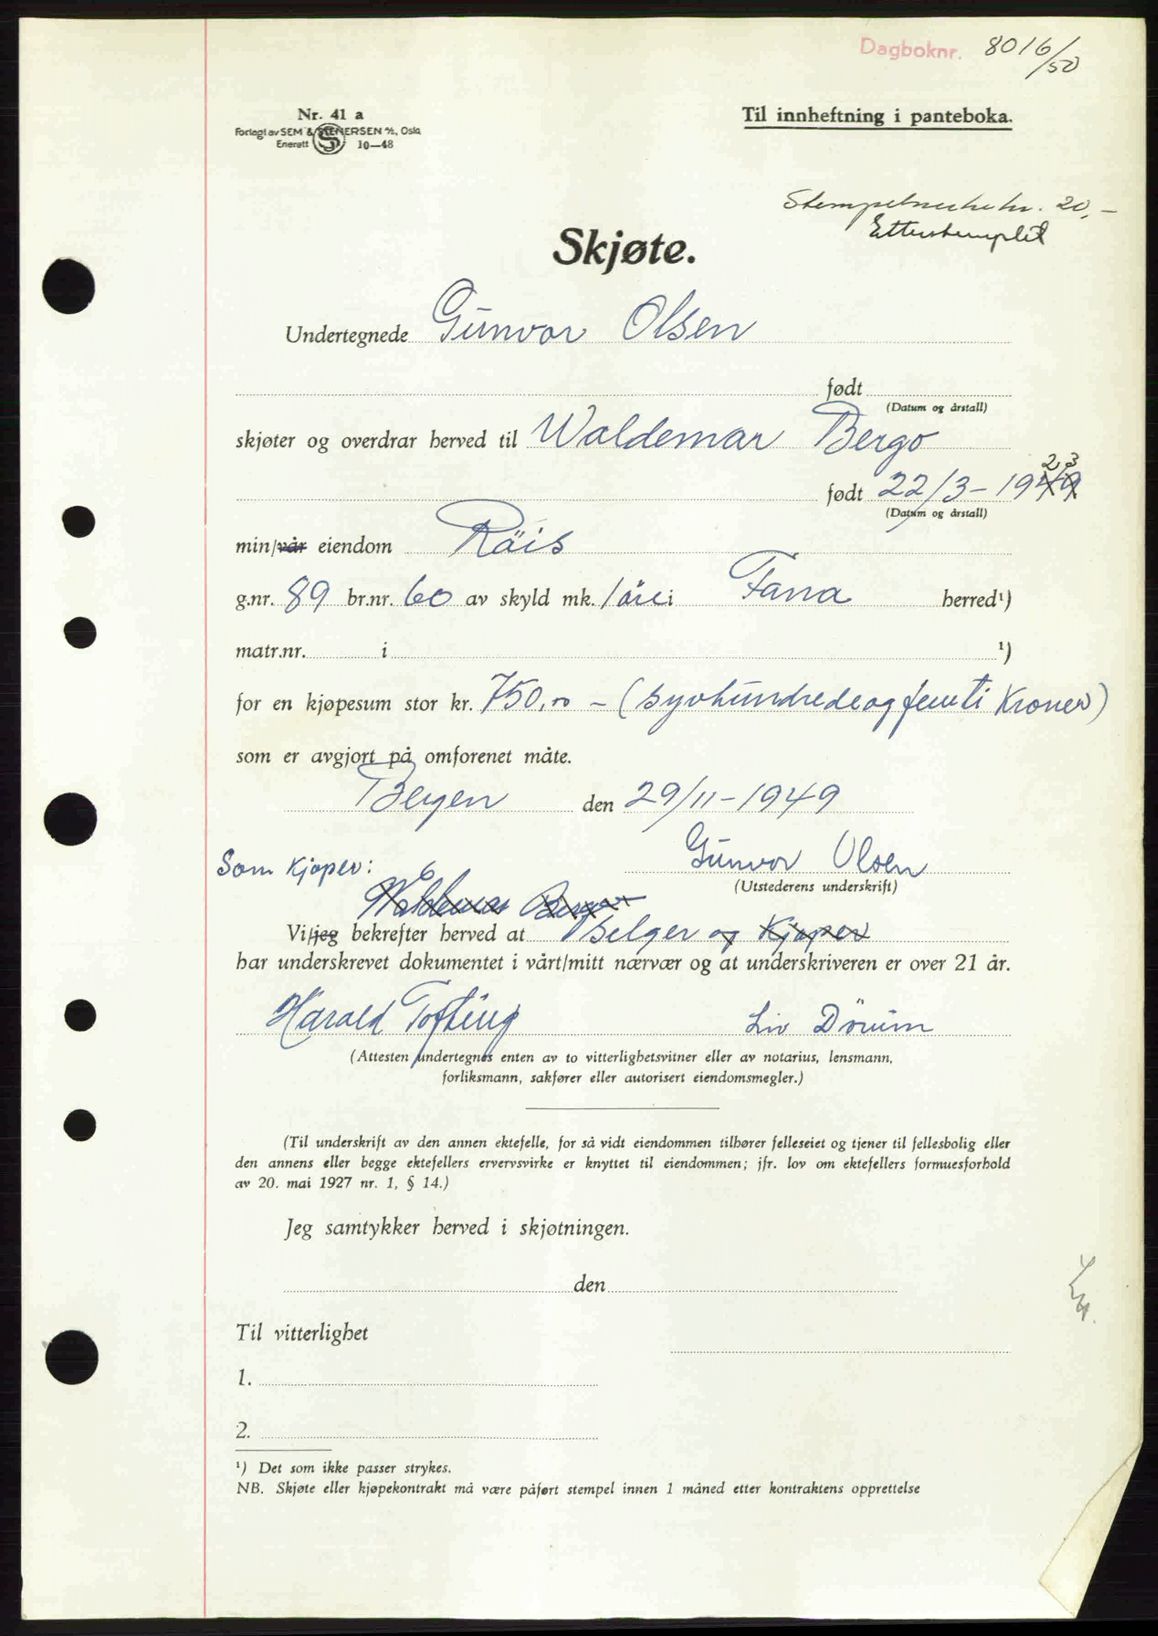 Dagboknr. 8016/50
Nr. 41 a
Forlagt av SEM & STENERSEN A/S, Oslo
Enerett 10—48
Til innheftning i panteboka.
Stempelmerke kr. 20,-
Etterstemplet
Skjøte.
Undertegnede Gunvor Olsen
født
(Datum og årstall)
skjøter og overdrar herved til Waldemar Bergo
23
født 22/3-1949
(Datum og årstall)
min/vår eiendom Röis
g.nr. 89 br.nr. 60 av skyld mk. 1 öre i Fana herred¹)
matr.nr. i ¹)
for en kjøpesum stor kr. 750,00 - (syvhundredeogfemti Kroner)
som er avgjort på omforenet måte.
Bergen den 29/11-1949
Gunvor Olsen
Som Kjøper:
(Utstederens underskrift)
Waldemar Bergo
Vi/jeg bekrefter herved at Selger og Kjøper
har underskrevet dokumentet i vårt/mitt nærvær og at underskriveren er over 21 år.
Harald Tofting Liv Dörum
(Attesten undertegnes enten av to vitterlighetsvitner eller av notarius, lensmann,
forliksmann, sakfører eller autorisert eiendomsmegler.)
(Til underskrift av den annen ektefelle, for så vidt eiendommen tilhører felleseiet og tjener til fellesbolig eller
den annens eller begge ektefellers ervervsvirke er knyttet til eiendommen; jfr. lov om ektefellers formuesforhold
av 20. mai 1927 nr. 1, § 14.)
Jeg samtykker herved i skjøtningen.
den
Til vitterlighet
1.
2.
¹) Det som ikke passer strykes.
NB. Skjøte eller kjøpekontrakt må være påført stempel innen 1 måned etter kontraktens opprettelse